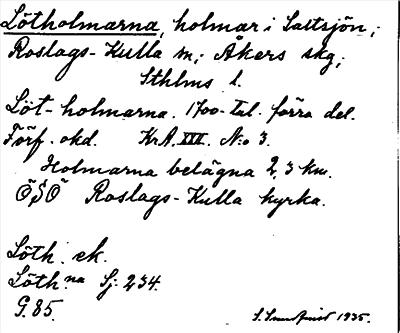 Lötholmarna, holmar i Saltsjön,;
Roslags-Kulla sn; Åkers skg;
Sthlms l.
Löt-holmarna. 1700-tal. förra del.
Förf. okd. Kr.A. XIII. N:o 3.
Holmarna belägna 2,3 km.
ÖSÖ Roslags-Kulla kyrka.
Löth. ek.
Löth.na Sj: 234.
G. 85.
1935.